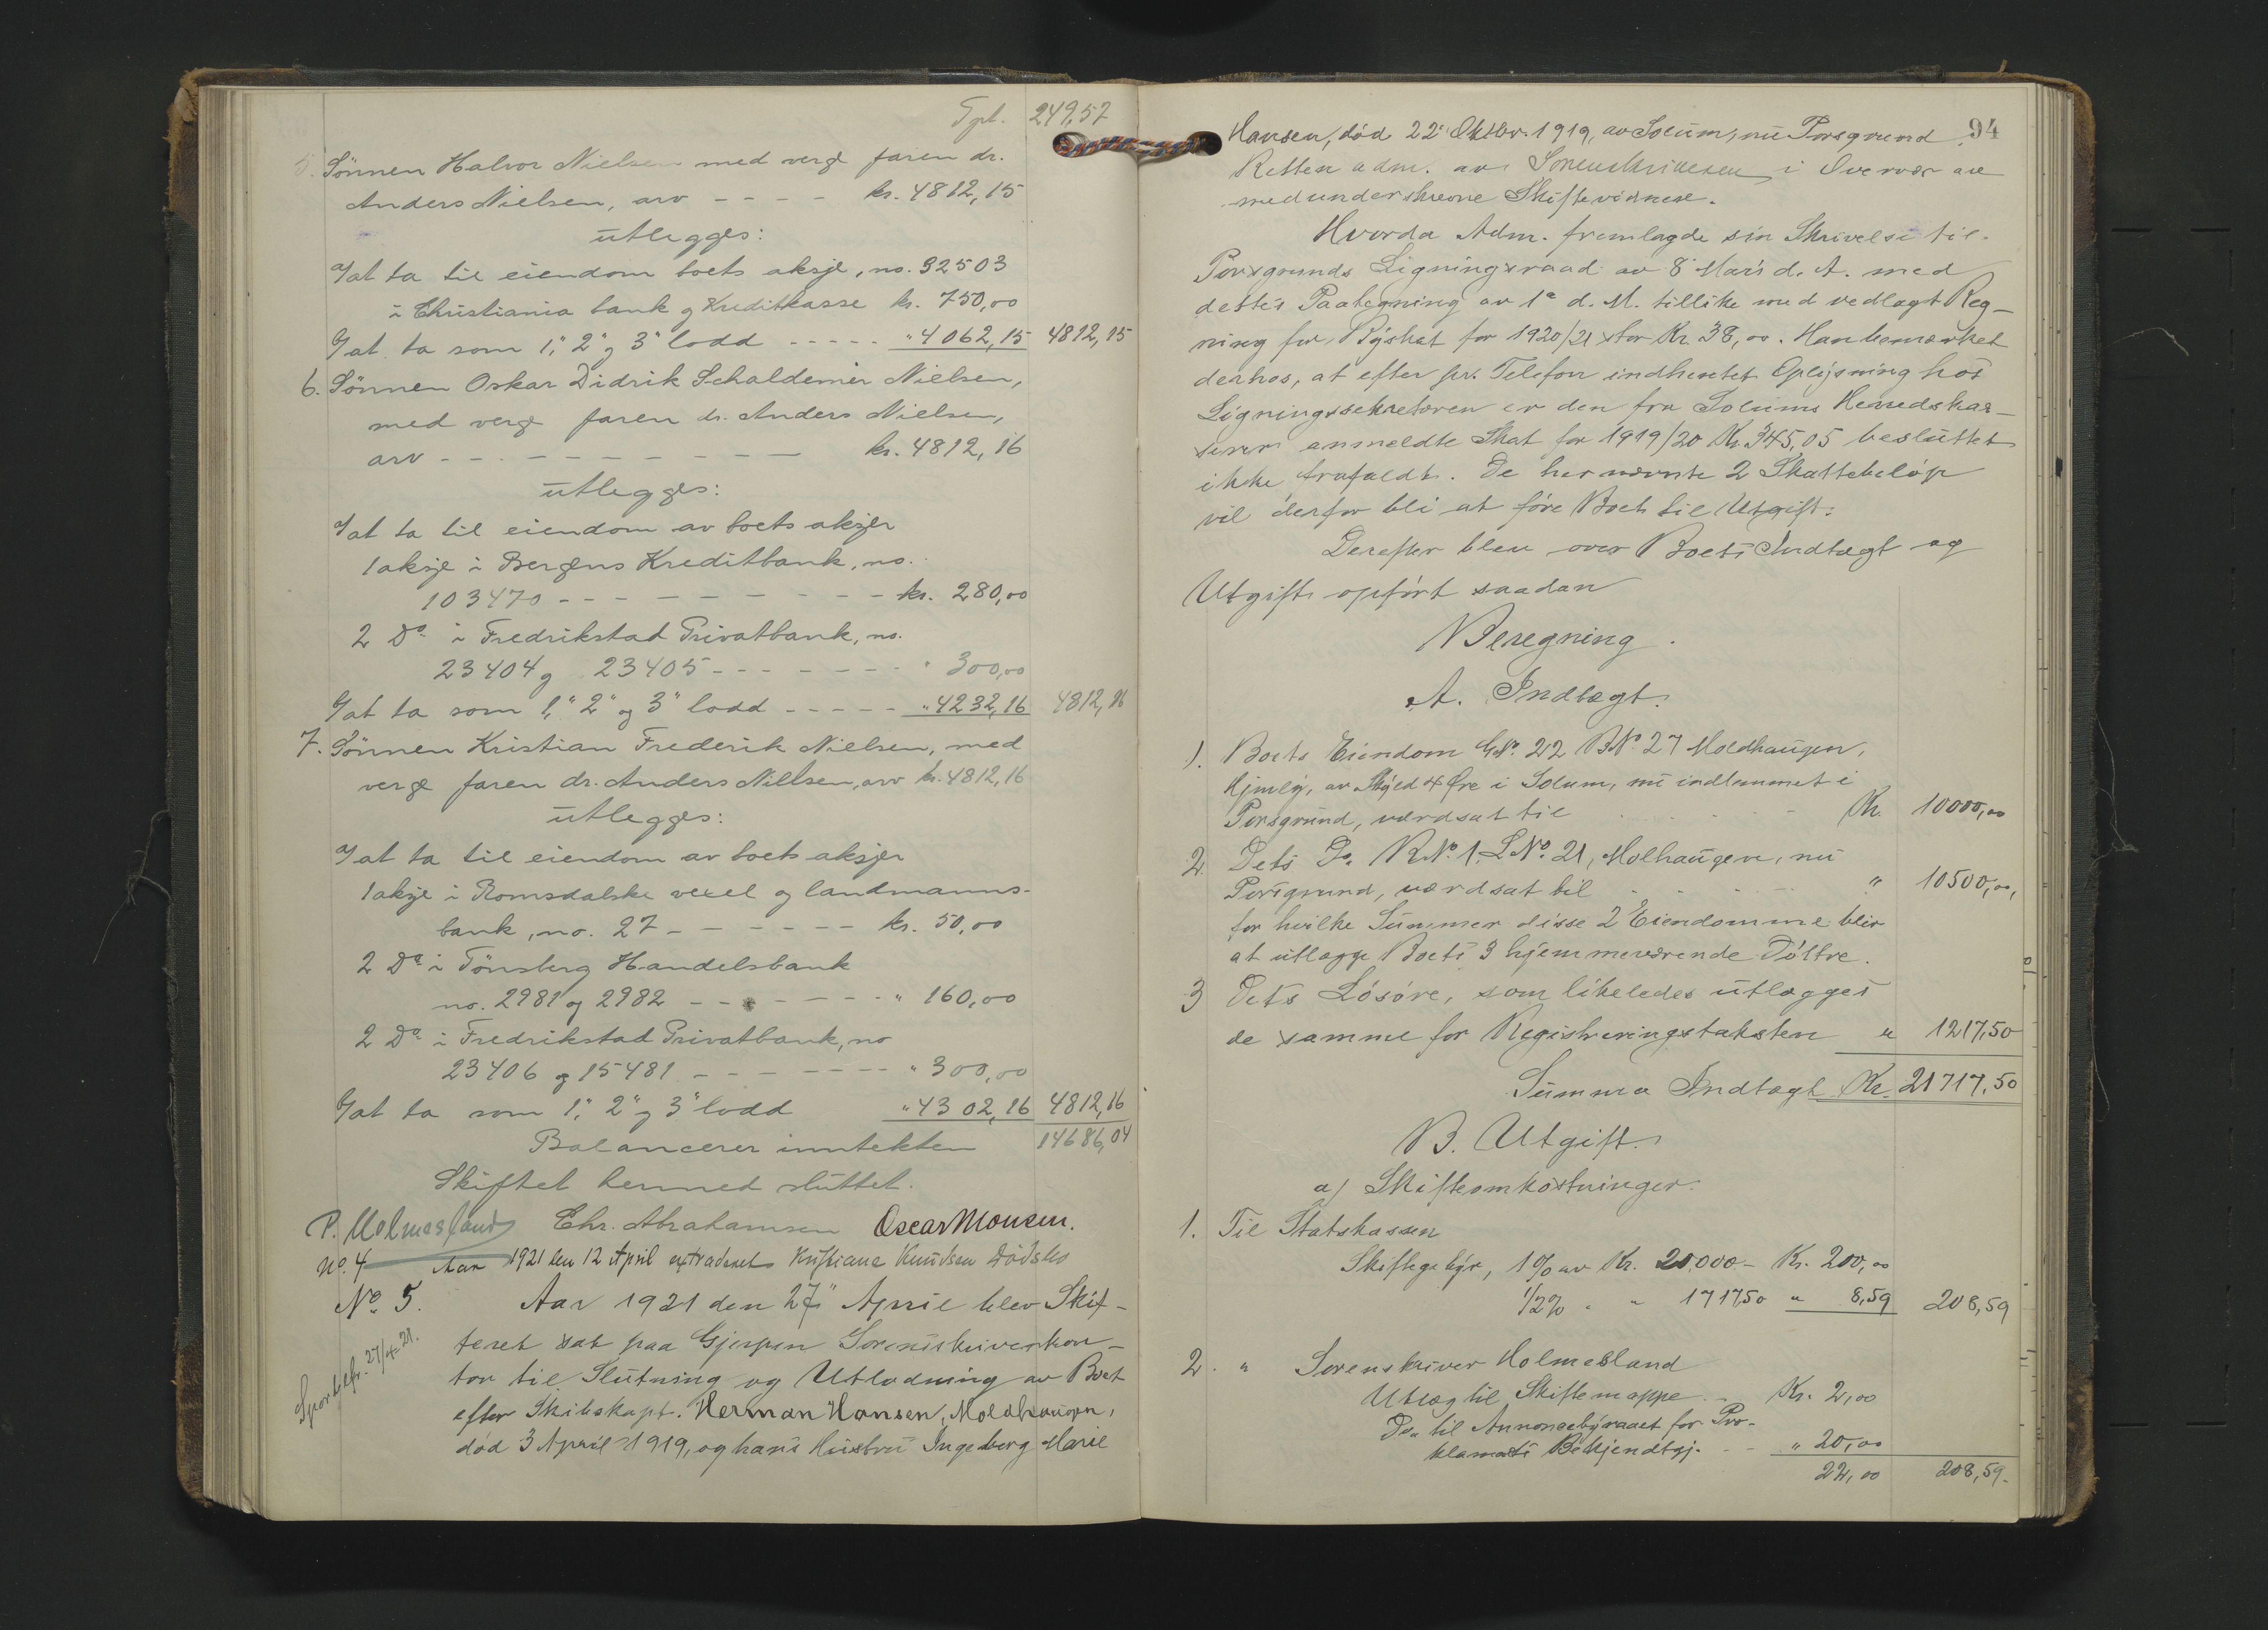 Tpt. 249,57
5. Sönnen Halvor Nielsen med verge faren dr.
Anders Nielsen, arv - - - - kr. 4812,15
utlegges:
I at ta til eiendom boets aksje, no. 32503
i Christiania bank og Kreditkasse kr. 750,00
I at ta som 1", 2" og 3" lodd - - - - - " 4062,15 4812,15
6. Sönnen Oskar Didrik Schaldemer Nielsen,
med verge faren dr. Anders Nielsen,
arv - - - - - - - - - - kr. 4812,16
utlegges:
I at ta til eiendom av boets aksjer
1 aksje i Bergens Kreditbank, no.
103470 - - - - - - - - - kr. 280,00
2 Do i Fredrikstad Privatbank, no.
23404 og 23405 - - - - - - - " 300,00
I at ta som 1", 2" og 3" lodd - - - - - " 4232,16 4812,16
7. Sönnen Kristian Frederik Nielsen, med
verge faren dr. Anders Nielsen, arv kr. 4812,16
utlegges:
I at ta til eiendom av boets aksjer
1 aksje i Romsdalske vexel og landmanns-
bank, no. 27 - - - - - - kr. 50,00
2 Do i Tönsberg Handelsbank
no. 2981 og 2982 - - - - - - - " 160,00
2 Do i Fredrikstad Privatbank, no
23406 og 15481 - - - - - - - " 300,00
I at ta som 1", 2" og 3" lodd " 4302,16 4812,16
Balancerer inntekten 14686,04
Skiftet hermed sluttet.
P. Holmesland Chr. Abrahamsen Oscar Monsen.
No. 4 Aar 1921 den 12 April extraderet Kristiane Knudsen Dödsbo
No. 5. Aar 1921 den 27" April blev Skif-
teret sat paa Gjerpen Sorenskriverkon-
tor til Slutning og Utlodning av Boet
Sportelfr. 27/4-21.
efter Skibskapt. Herman Hansen, Moldhaugen,
död 3 April 1919, og hans Hustru Ingeborg Marie
94
Hansen, död 22' Oktbr. 1919, av Solum, nu Porsgrund.
Retten adm. av Sorenskriveren i Overvær av
medunderskrevne Skiftevidnese.
Hvorda Adm. fremlagde sin Skrivelse til
Porsgrunds Ligningsraad av 8' Mars d. A. med
dettes Paategning av 1e d. M. tillike med vedlagt Reg-
ning for Byskat for 1920/21 stor Kr. 38,00. Han bemærket
derhos, at efter pr. Telefon indhentet Oplysning hos
Ligningssekretæren er den fra Solums Herredskas-
serer anmeldte Skat for 1919/20 Kr. 345,05 besluttet
ikke frafaldt. De her nævnte 2 Skattebelöp
vil derfor bli at före Boet til Utgift.
Derefter blev over Boets Indtægt og
Utgift opfört saadan
Beregning.
A. Indtægt.
1. Boets Eiendom GNo. 22 BNo. 27 Moldhaugen,
Hjmlg, av Skyld 4 Öre i Solum, nu indlemmet i
Porsgrund, værdsat til Kr. 10000,00
2. Dets Do. RNo. 1, LNo. 21, Molhaugen, nu
Porsgrund, værdsat til " 10500,00,
for hvilke Summer disse 2 Eiendomme blir
at utlægge Boets 3 hjemmeværende Döttre.
3 Dets Lösöre, som likeledes utlægges
de samme for Registreringstaksten " 1217,50
Summa Indtægt Kr. 21717,50
B. Utgift.
a) Skifteomkostninger.
1. Til Statskassen
Skiftegebyr, 1% av Kr. 20.000 - Kr. 200,00
1/2% " " 1717,50 " 8,59 208,59
2. " Sorenskriver Holmesland
Utlæg til Skiftemappe - Kr. 2,00
Do. til Annoncebyraaet for Pro-
klamats Bekjendtgj. - - " 20,00
22,00 208,59.